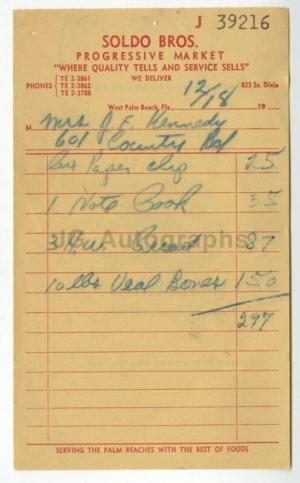 J 39216
SOLDO BROS.
PROGRESSIVE MARKET
"WHERE QUALITY TELLS AND SERVICE SELLS"
WE DELIVER
PHONES TE 2-3861 TE 2-3862 TE 2-3788
825 So. Dixie
West Palm Beach, Fla., 12/18 19
M Mrs J. F. Kennedy
601 County Rd
Paper clip 25
1 Note Book 35
JG Autographs
3 Bread 87
10 lbs Veal Bones 1 50
2 97
SERVING THE PALM BEACHES WITH THE BEST OF FOODS